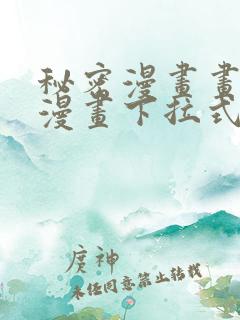 秘密漫畫畫
漫畫下拉式
庹神
未任同意禁止转载